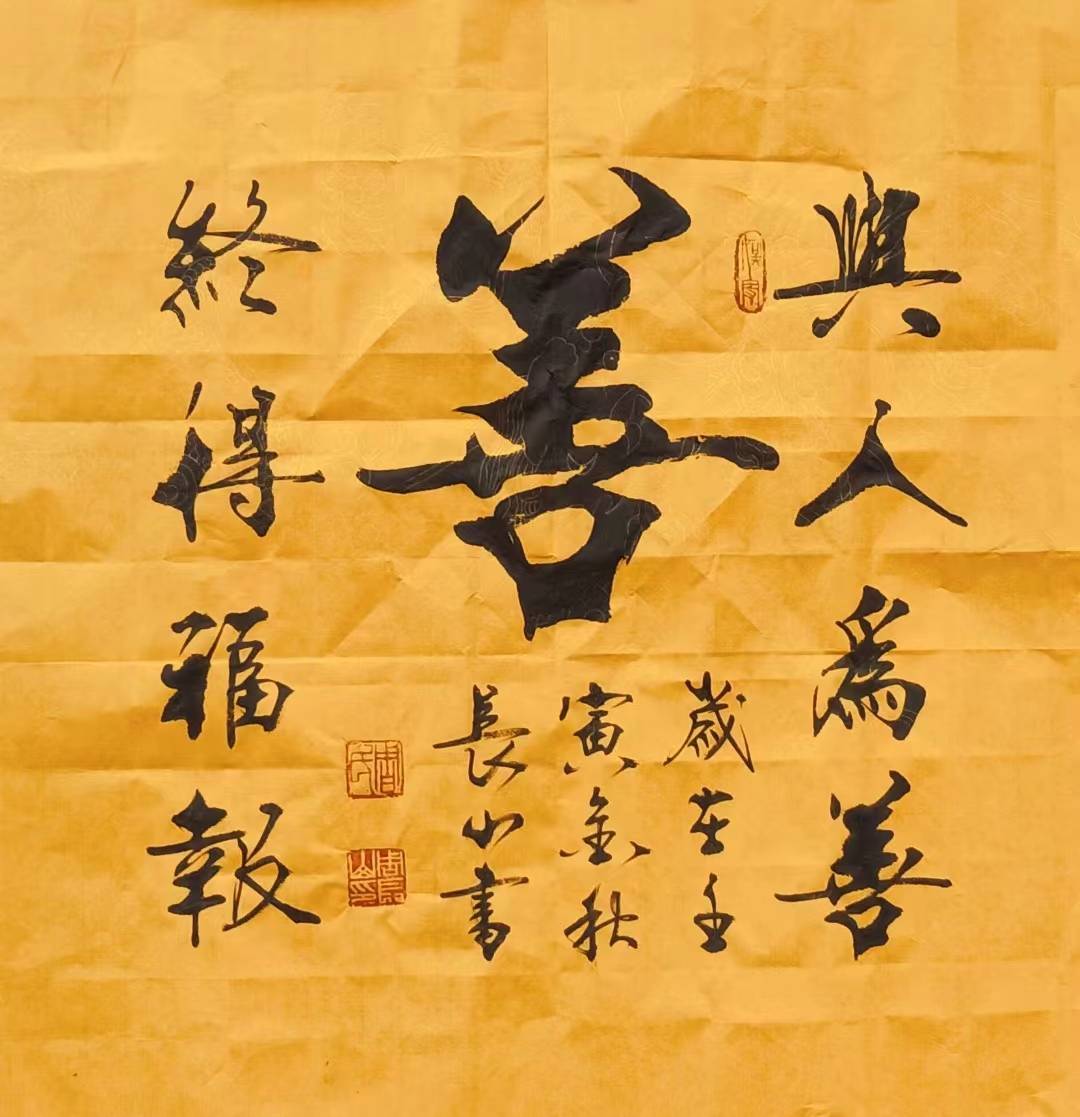 與人為善
善
歲在壬
寅金秋
長山書
終得福報